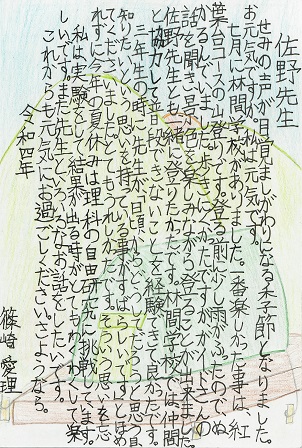 佐野先生
せみの声が目覚ましがわりになる季節になりました。
お元気ですか。私は元気です。
七月に林間学校がありました。一番楽しかった事は、紅
葉台コースの山登りです。登る前に少し雨がふったので、ぬ
かるんでいましたし歩くのが大へんでしたがガイドさんの
話を聞き景色を楽しみながら登ることが出来ました。
佐野先生とも一緒に登りたかったです。林間学校では、仲間
と協力して普段できないことを経験できて良かったです。
三年生の時、先生が「日頃からどうしてだろうと思う、
知りたいという思いを持てている事がすばらしいです」とほめ
てくださいました。とてもうれしかったです。そういう思いを忘
れずに今年の夏休みは理科の自由研究に挑戦しています。
私は実験をして結果が出る時がとてもわくわくして楽
しいです。また先生といろんなお話をしたいです。
これからも元気にお過ごしください。さようなら。
令和四年
篠﨑愛理